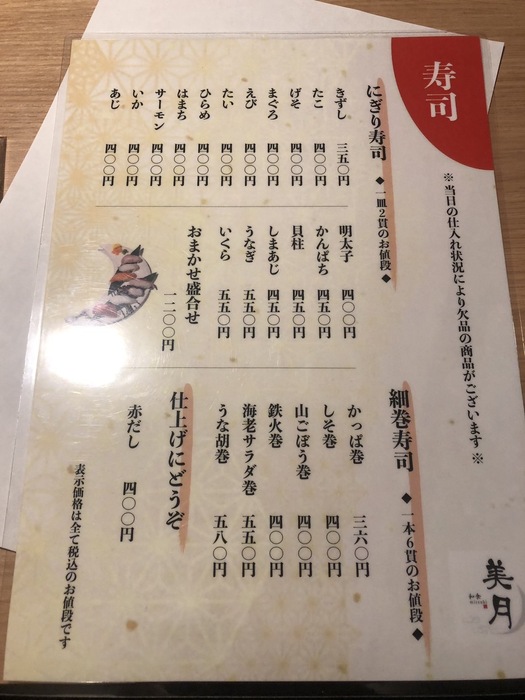 寿司
※ 当日の仕入れ状況により欠品の商品がございます ※
にぎり寿司 ◆ 一皿2貫のお値段 ◆
きずし 三五〇円
たこ 四〇〇円
げそ 四〇〇円
まぐろ 四〇〇円
えび 四〇〇円
たい 四〇〇円
ひらめ 四〇〇円
はまち 四〇〇円
サーモン 四〇〇円
いか 四〇〇円
あじ 四〇〇円
明太子 四〇〇円
かんぱち 四五〇円
貝柱 四五〇円
しまあじ 四五〇円
うなぎ 五五〇円
いくら 五五〇円
おまかせ盛合せ 一二〇〇円
細巻寿司 ◆ 一本6貫のお値段 ◆
かっぱ巻 三六〇円
しそ巻 四〇〇円
山ごぼう巻 四〇〇円
鉄火巻 四〇〇円
海老サラダ巻 五五〇円
うな胡巻 五八〇円
仕上げにどうぞ
赤だし 四〇〇円
表示価格は全て税込のお値段です
美月